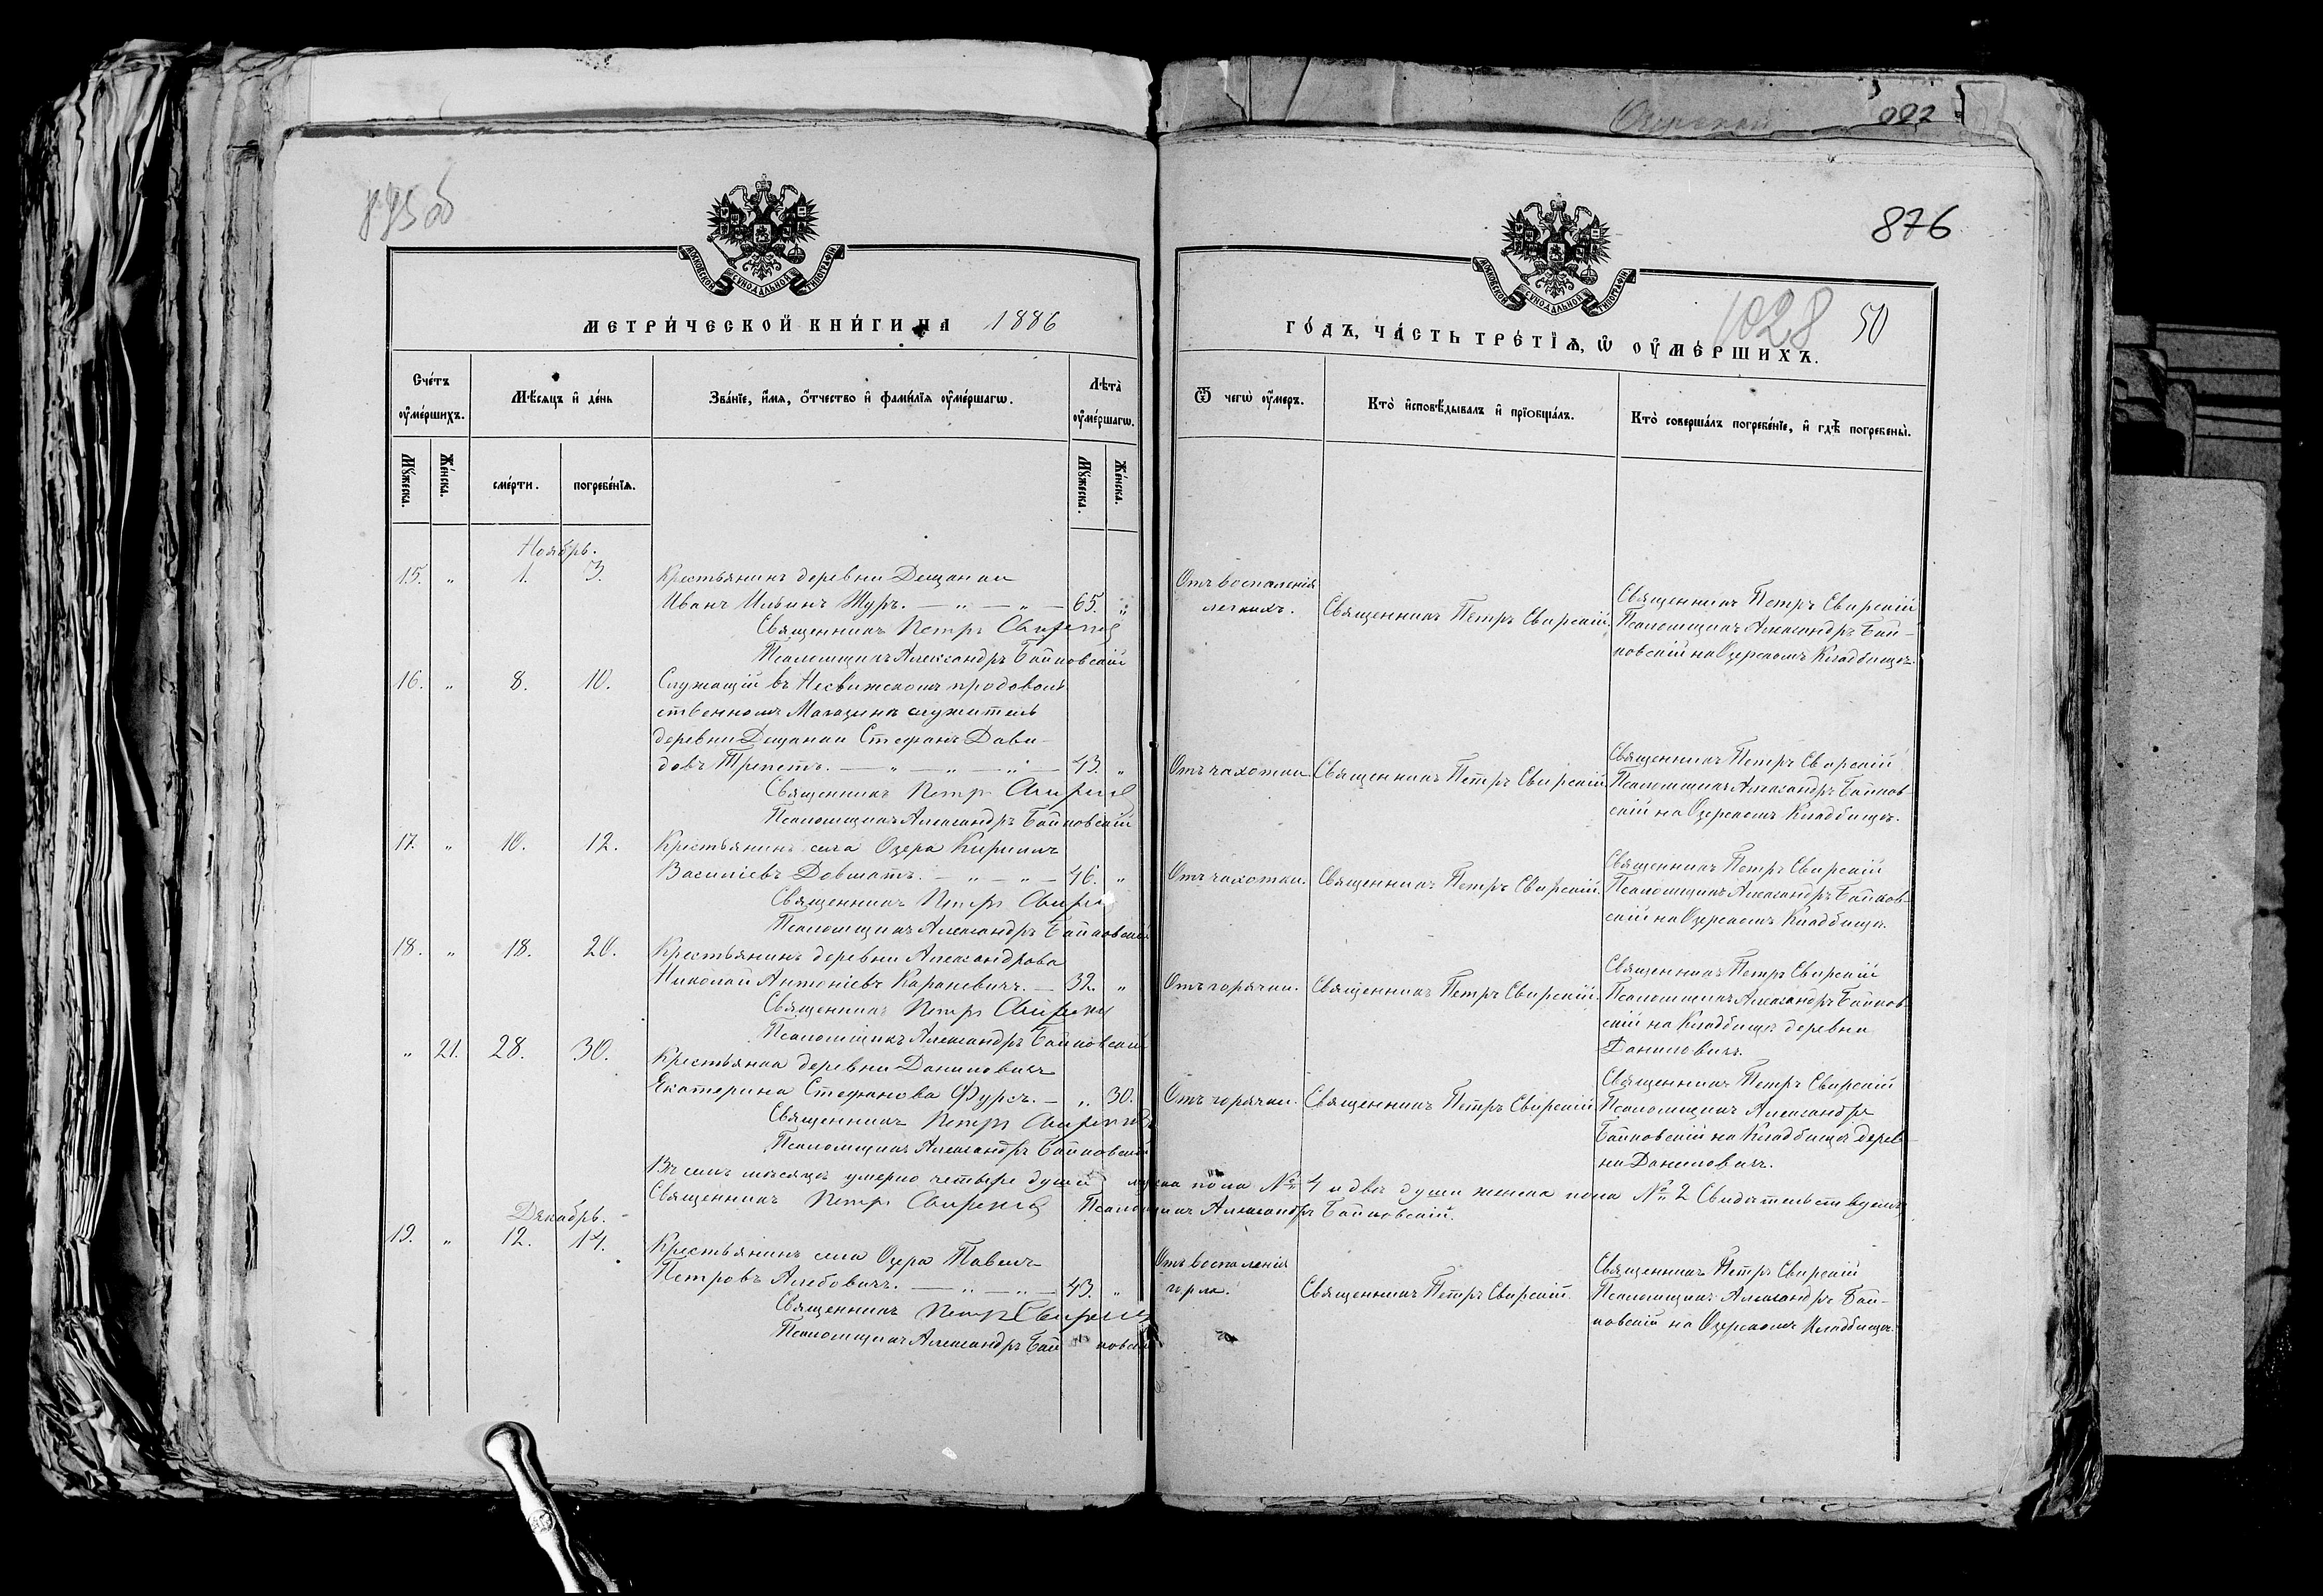 Озерской 092
875 об
876
МОСКОВСКОЙ СѴНОДАЛЬНОЙ ТИПОГРАФІИ
МОСКОВСКОЙ СѴНОДАЛЬНОЙ ТИПОГРАФІИ
1028 50
МЕТРИ́ЧЕСКОЙ КНИ́ГИ НА 1886
ГО́ДЪ, ЧА́СТЬ ТРЕ́ТІѦ, Ѡ҆ ОУ҆МЕ́РШИХЪ.
Сче́тъ оу҆ме́ршихъ.
Мѣ́сяцъ и҆ де́нь
Зва́нїе, и҆́мя, ѻ҆́тчество и҆ фами́лїя оу҆ме́ршагѡ.
Лѣ́та оу҆ме́ршагѡ.
Ѿ чегѡ̀ оу҆́меръ.
Кто̀ и҆сповѣ́дывалъ и҆ прїобща́лъ.
Кто̀ соверша́лъ погребе́нїе, и҆ гдѣ̀ погребены̀.
Му́жеска.
Же́нска.
сме́рти.
погребе́нїя.
Му́жеска.
Же́нска.
Ноябрь.
15. „ 1. 3. Крестьянинъ деревни Дещанки
Иванъ Ильинъ Журъ. — „ — „ — 65. „
Священникъ Петръ Свирскій
Псаломщикъ Александръ Байковскій
Отъ воспаленія
легкихъ.
Священникъ Петръ Свирскій.
Священникъ Петръ Свирскій
Псаломщикъ Александръ Бай-
ковскій на Озерскомъ Кладбищѣ.
16. „ 8. 10. Служащій въ Несвижскомъ продоволь
ственномъ Магазинѣ служитель
деревни Дещанки Стефанъ Дави-
довъ Трепетъ. — „ — „ — „ — 43. „
Священникъ Петръ Свирскій
Псаломщикъ Александръ Байковскій
Отъ чахотки.
Священникъ Петръ Свирскій.
Священникъ Петръ Свирскій
Псаломщикъ Александръ Байков-
скій на Озерскомъ Кладбищѣ.
17. „ 10. 12. Крестьянинъ села Озера Кириллъ
Василіевъ Довнатъ. — „ — „ — 46. „
Священникъ Петръ Свирскій
Псаломщикъ Александръ Байковскій
Отъ чахотки.
Священникъ Петръ Свирскій.
Священникъ Петръ Свирскій
Псаломщикъ Александръ Байков-
скій на Озерскомъ Кладбищѣ.
18. „ 18. 20. Крестьянинъ деревни Александрова
Николай Антоніевъ Караневичъ. — 32. „
Священникъ Петръ Свирскій
Псаломщикъ Александръ Байковскій
Отъ горячки.
Священникъ Петръ Свирскій.
Священникъ Петръ Свирскій
Псаломщикъ Александръ Байков-
скій на Кладбищѣ деревни
Даниловичъ.
„ 21. 28. 30. Крестьянка деревни Даниловичъ
Екатерина Стефанова Фурсъ. — „ 30.
Священникъ Петръ Свирскій
Псаломщикъ Александръ Байковскій
Отъ горячки.
Священникъ Петръ Свирскій
Священникъ Петръ Свирскій
Псаломщикъ Александръ
Байковскій на Кладбищѣ дерев-
ни Даниловичъ.
Въ семъ мѣсяцѣ умерло четыре души мужска пола № 4 и двѣ души женска пола № 2 Свидѣтельствуемъ
Священникъ Петръ Свирскій Псаломщикъ Александръ Байковскій.
Декабрь.
19. „ 12. 14. Крестьянинъ села Озера Павелъ
Петровъ Алебовичъ. — „ — „ — 43. „
Священникъ Петръ Свирскій
Псаломщикъ Александръ Байковскій
Отъ воспаленія
горла.
Священникъ Петръ Свирскій.
Священникъ Петръ Свирскій
Псаломщикъ Александръ Бай-
ковскій на Озерскомъ Кладбищѣ.